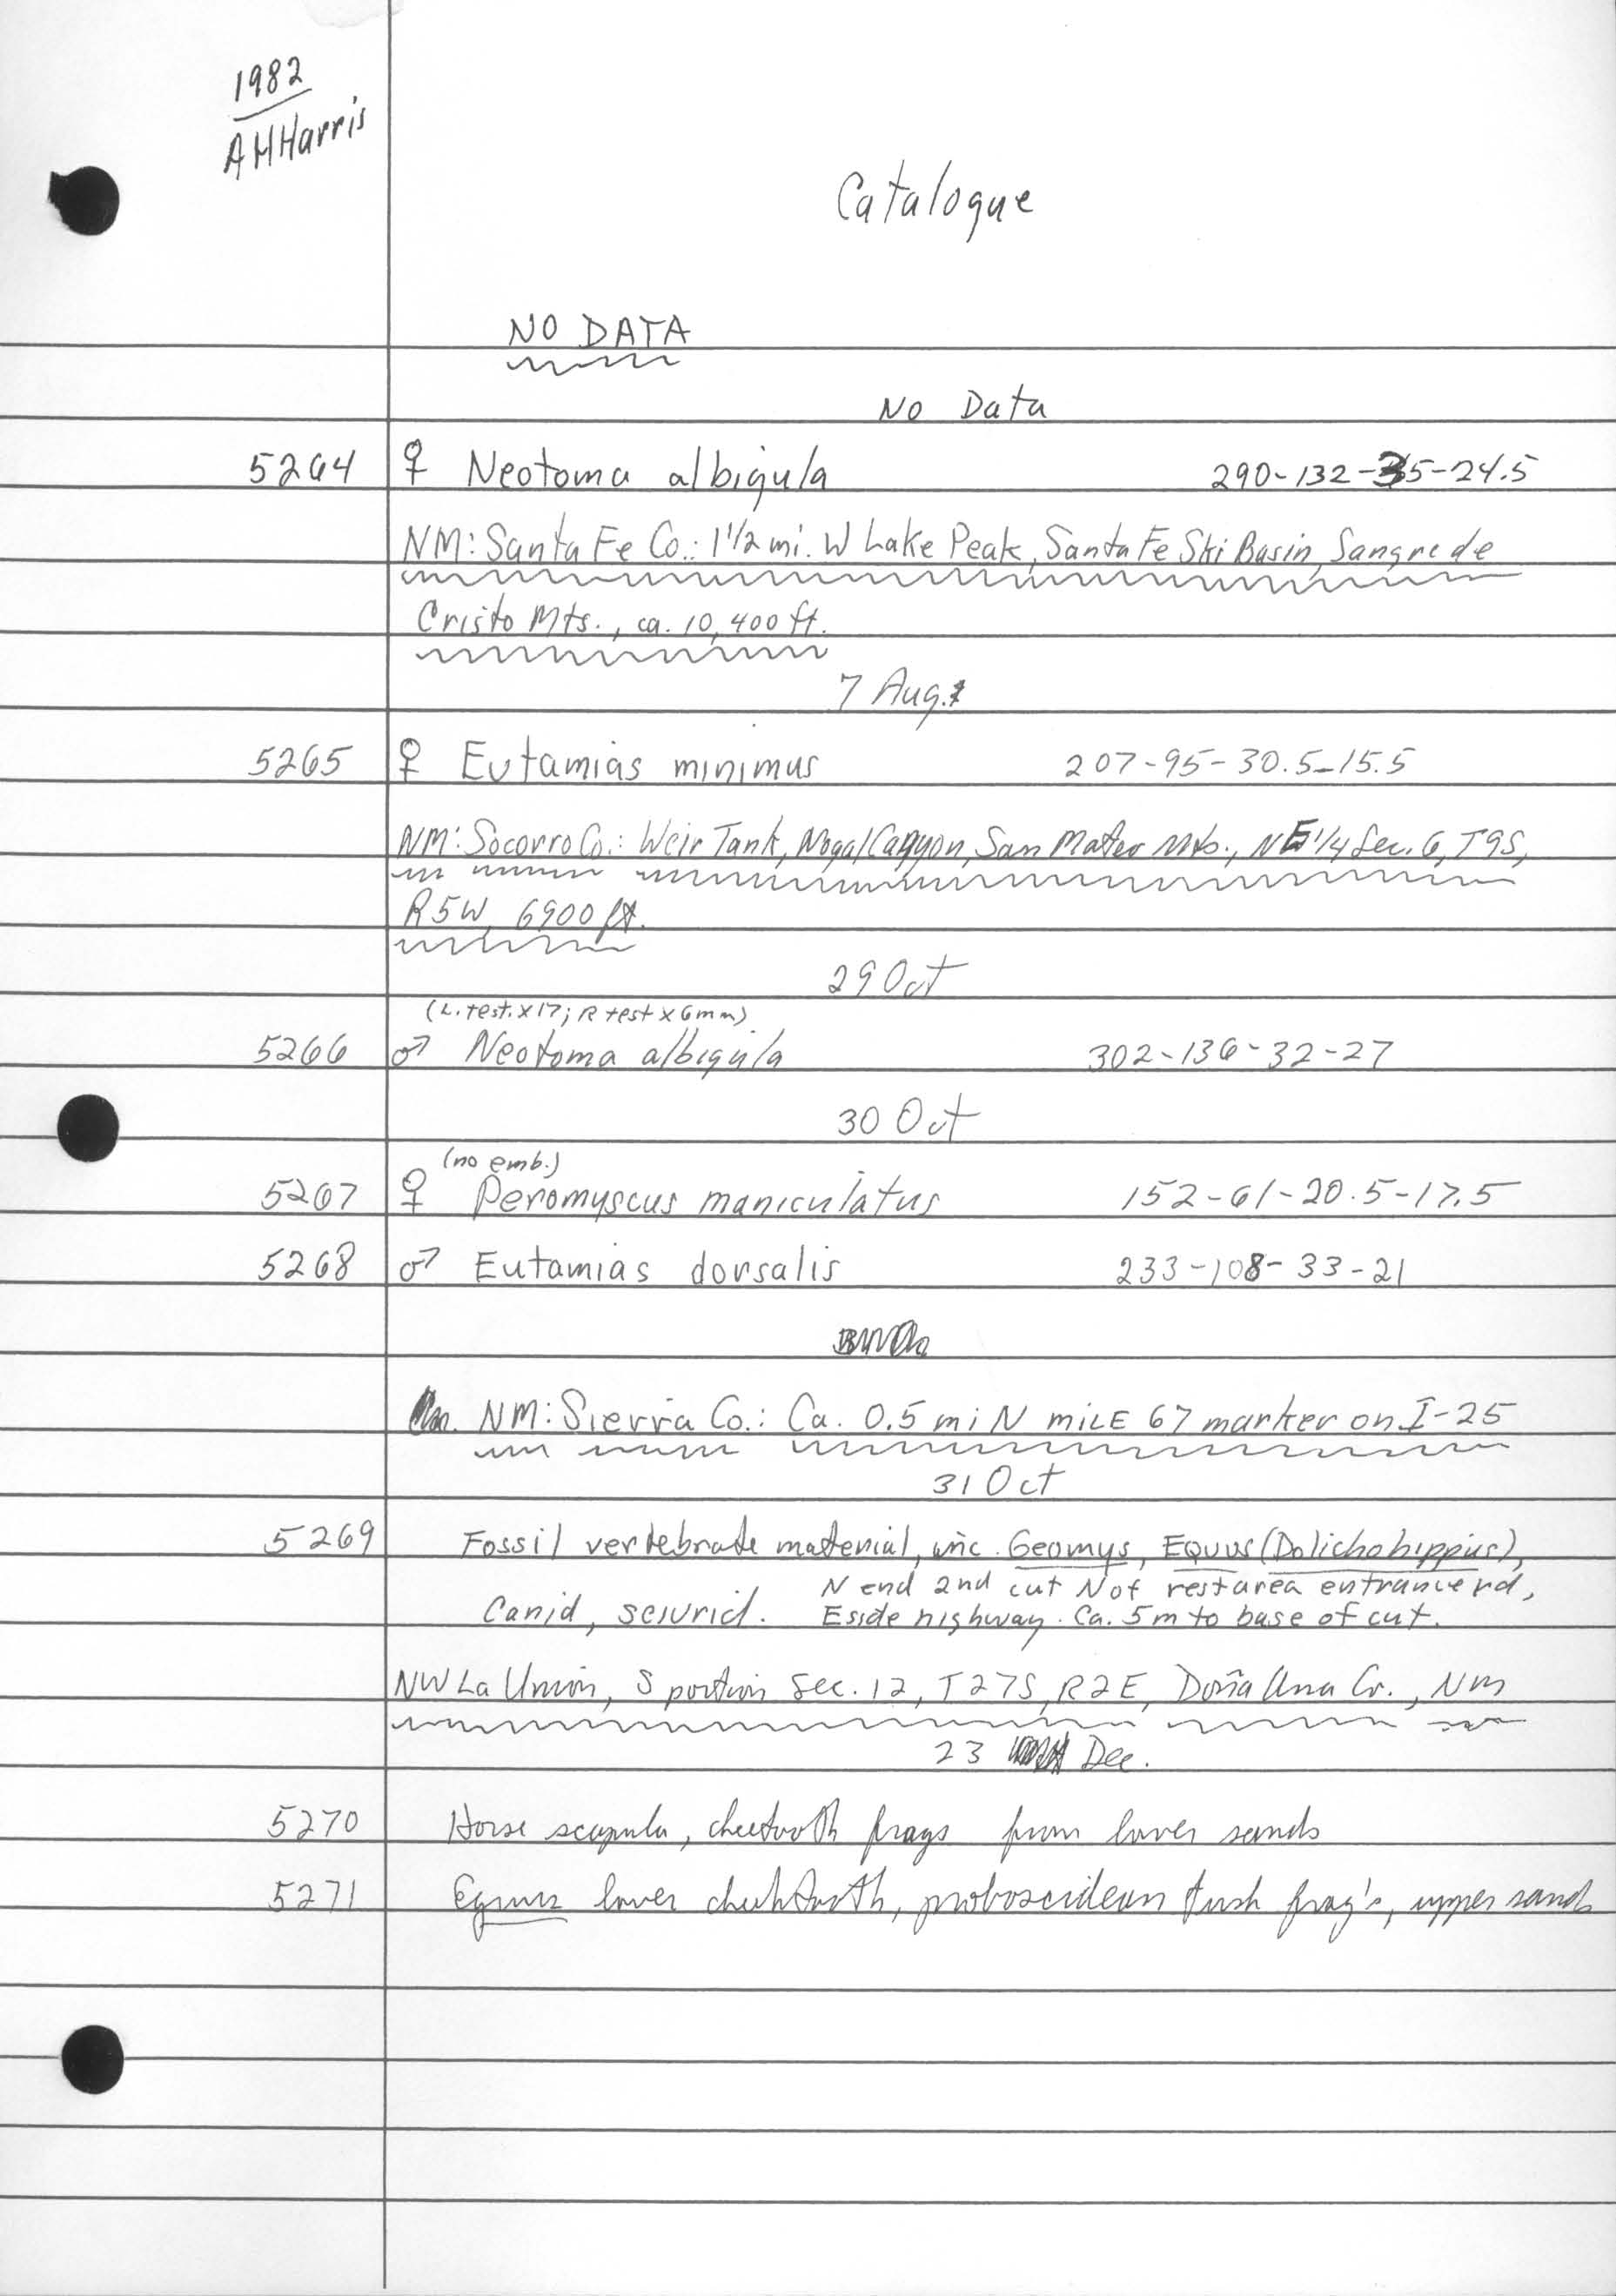 1982
AHHarris
Catalogue
NO DATA
No Data
5264 ♀ Neotoma albigula 290-132-35-24.5
NM: Santa Fe Co.: 1 1/2 mi. W Lake Peak, Santa Fe Ski Basin, Sangre de
Cristo Mts., ca. 10,400 ft.
7 Aug.
5265 ♀ Eutamias minimus 207-95-30.5-15.5
NM: Socorro Co.: Weir Tank, Nogal Canyon, San Mateo Mts., NE 1/4 Sec. 6, T9S,
R5W, 6900 ft.
29 Oct
(L. test. x 17; R test x 6mm)
5266 ♂ Neotoma albigula 302-136-32-27
30 Oct
(no emb.)
5267 ♀ Peromyscus maniculatus 152-61-20.5-17.5
5268 ♂ Eutamias dorsalis 233-108-33-21
NM: Sierra Co.: Ca. 0.5 mi N mile 67 marker on I-25
31 Oct
5269 Fossil vertebrate material, inc. Geomys, Equus (Dolichohippus),
Canid, sciurid. N end 2nd cut N of rest area entrance rd,
E side highway. Ca. 5 m to base of cut.
NW La Union, S portion Sec. 12, T27S, R2E, Doña Ana Co., NM
23 Dec.
5270 Horse scapula, cheektooth frags from lower sands
5271 Equus lower cheektooth, proboscidean tusk frag's, upper sands